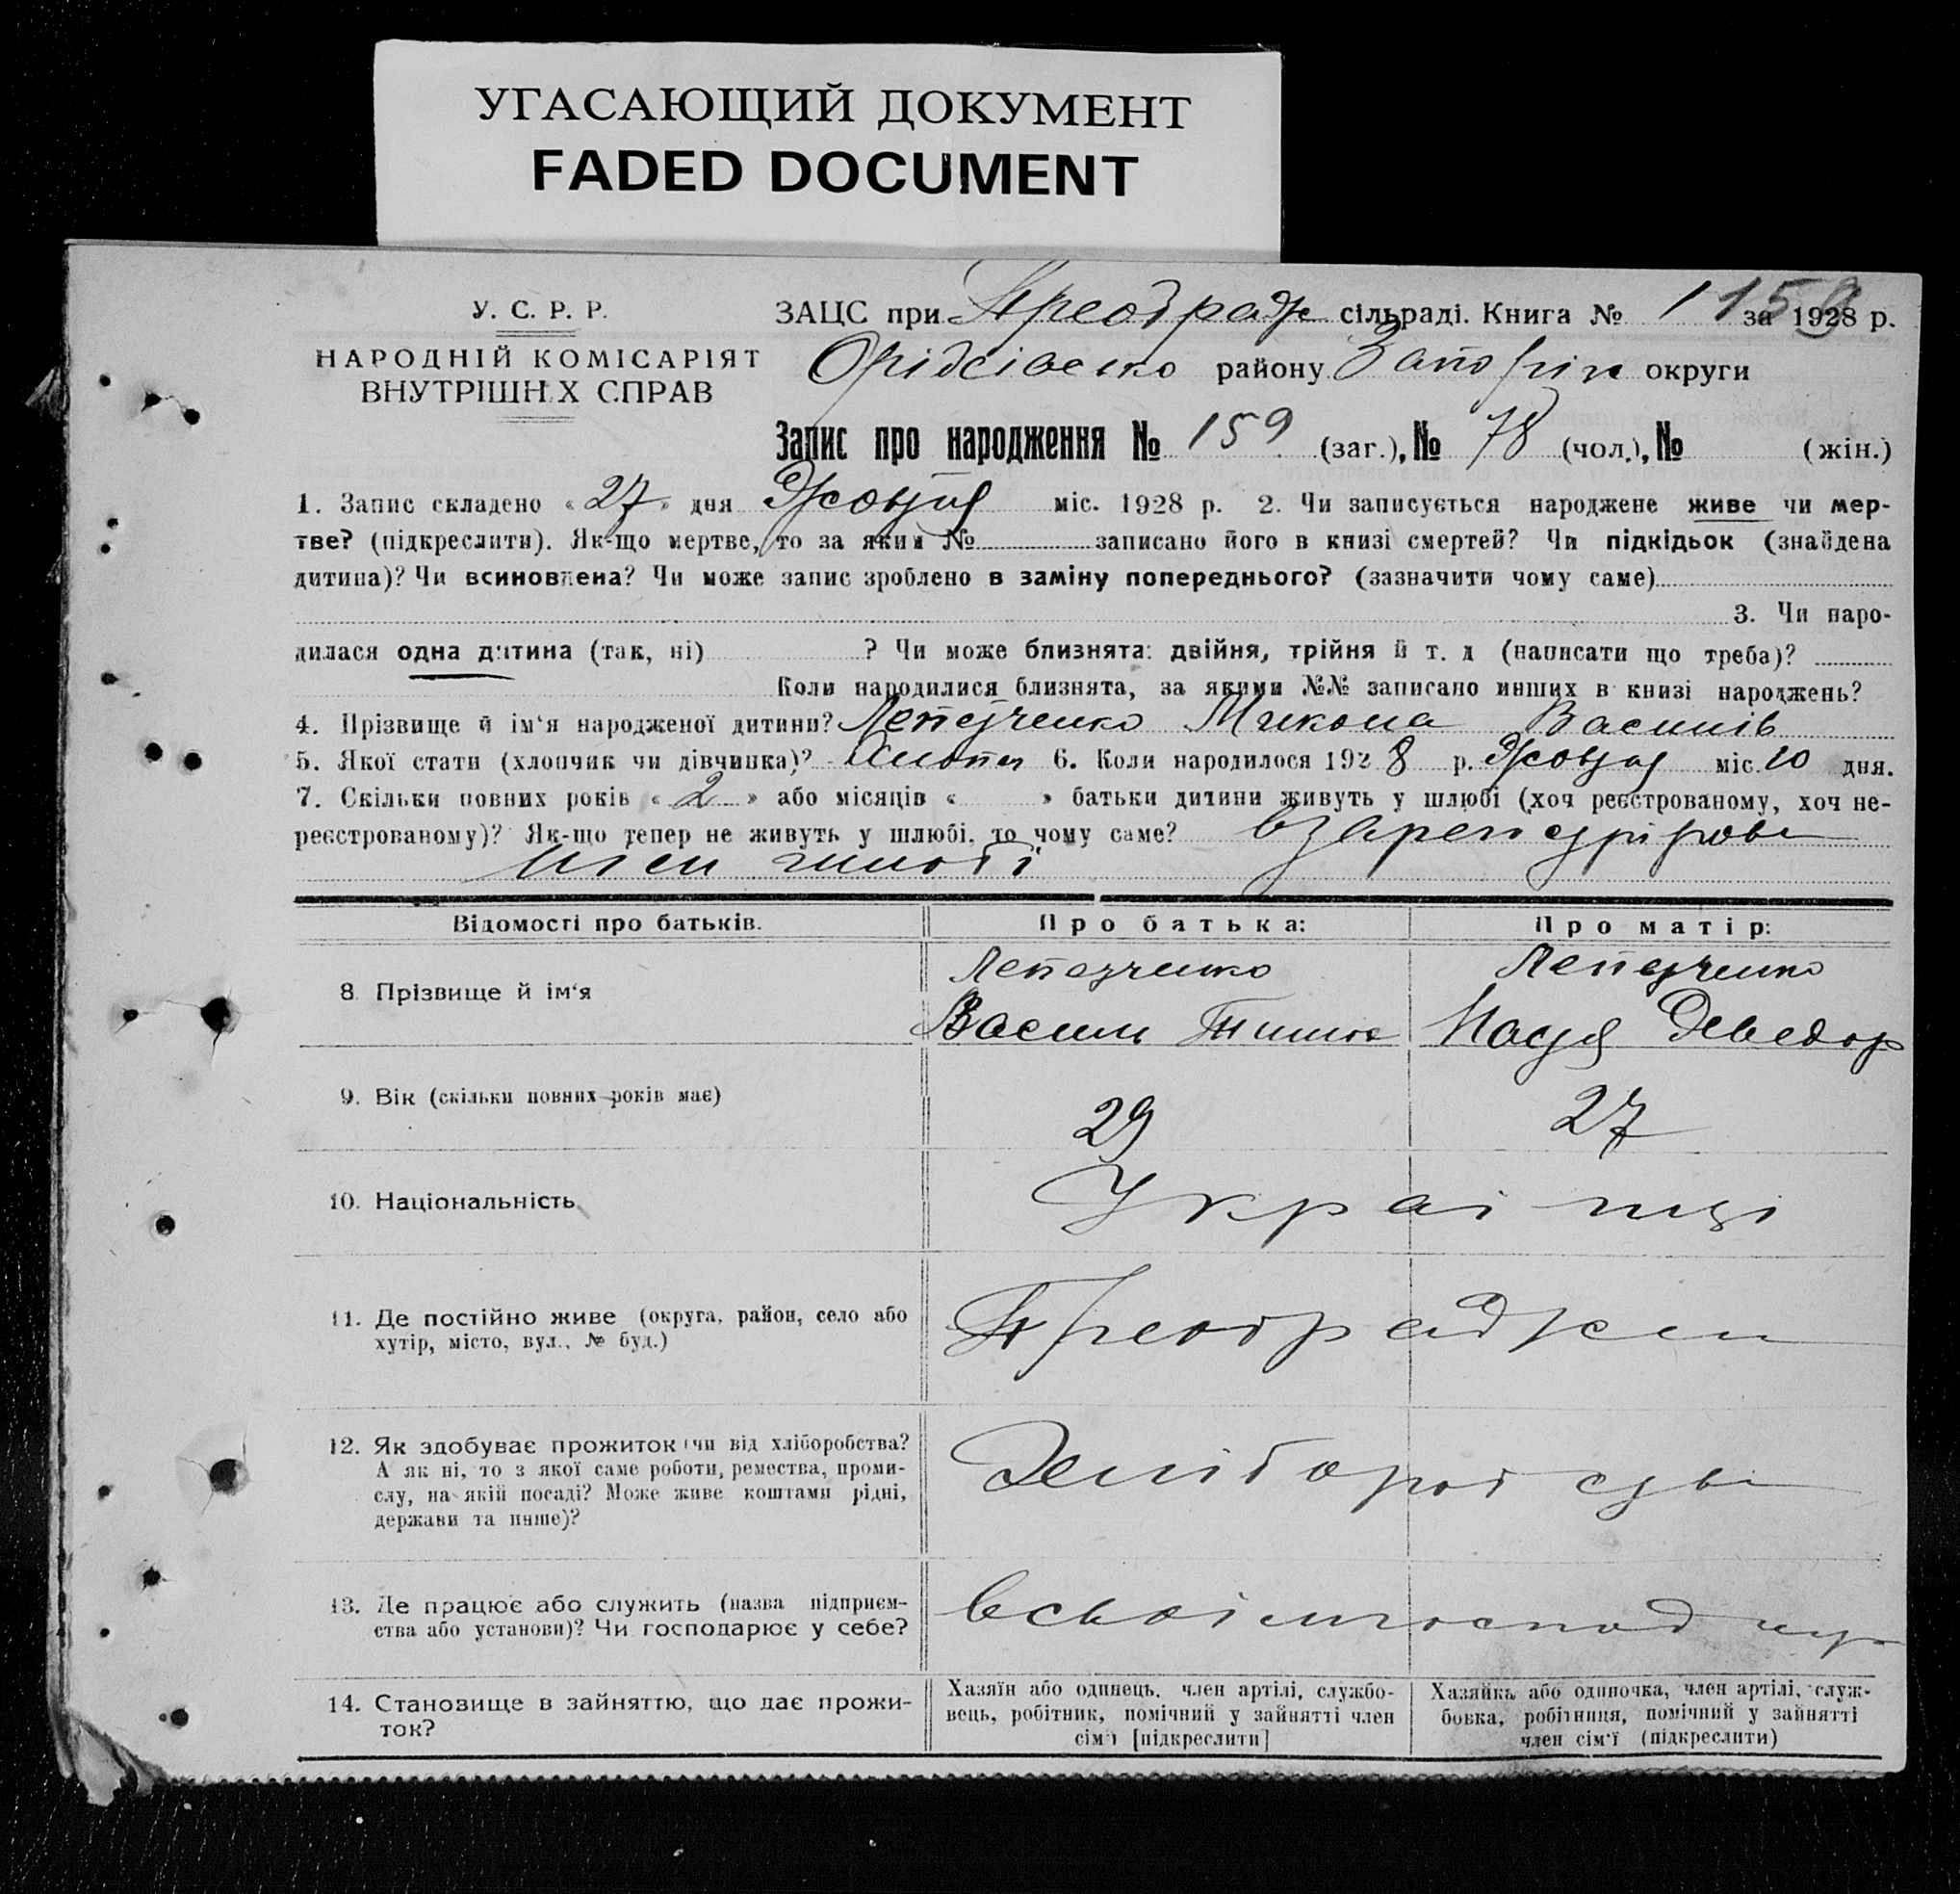 УГАСАЮЩИЙ ДОКУМЕНТ
FADED DOCUMENT
У. С. Р. Р.
НАРОДНІЙ КОМІСАРІЯТ
ВНУТРІШНІХ СПРАВ
ЗАЦС при Преображ сільраді. Книга № 1 за 1928 р.
159
району Запоріж округи
Запис про народження № 159 (заг.), № 78 (чол.), № (жін.)
1. Запис складено «27» дня Жовтня міс. 1928 р. 2. Чи записується народжене живе чи мер-
тве? (підкреслити). Як-що мертве, то за яким № записано його в книзі смертей? Чи підкідьок (знайдена
дитина)? Чи всиновлена? Чи може запис зроблено в заміну попереднього? (зазначити чому саме)
3. Чи наро-
дилася одна дитина (так, ні) ? Чи може близнята: двійня, трійня й т. д (написати що треба)?
Коли народилися близнята, за якими №№ записано инших в книзі народжень?
4. Прізвище й ім‘я народженої дитини? Микола Василів
5. Якої стати (хлопчик чи дівчинка)? Хлопец 6. Коли народилося 1928 р. Жовтня міс. 10 дня.
7. Скільки повних років «2» або місяців « » батьки дитини живуть у шлюбі (хоч реєстрованому, хоч не-
реєстрованому)? Як-що тепер не живуть у шлюбі, то чому саме?
шлюбі
Відомості про батьків.
Про батька:
Про матір:
8 Прізвище й ім‘я
Василь
Федор
9. Вік (скільки повних років має)
29
27
10. Національність
Украінці
11. Де постійно живе (округа, район, село або
хутір, місто, вул., № буд.)
Преображен
12. Як здобуває прожиток (чи від хліборобства?
А як ні, то з якої саме роботи, ремества, проми-
слу, на якій посаді? Може живе коштами рідні,
держави та инше)?
Хліборобства
13. Де працює або служить (назва підприєм-
ства або установи)? Чи господарює у себе?
в своім господ
14. Становище в зайняттю, що дає прожи-
ток?
Хазяїн або одинець, член артілі, службо-
вець, робітник, помічний у зайнятті член
сім‘ї [підкреслити]
Хазяйка або одиночка, член артілі, служ-
бовка, робітниця, помічний у зайнятті
член сім‘ї (підкреслити)